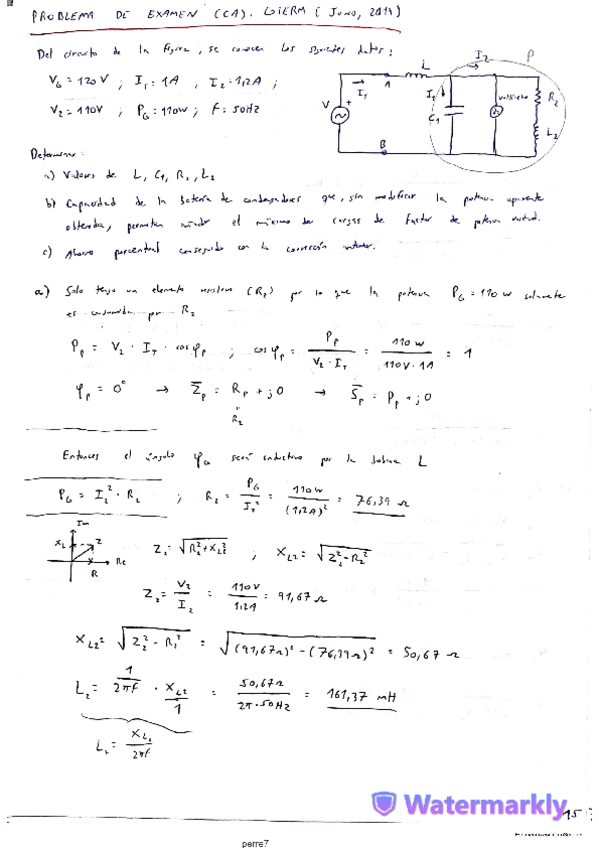 PROBLEMA DE EXAMEN (CA). GIERM (JUNIO, 2014)
Del circuito de la figura, se conocen los siguientes datos:
VG = 120V ; IT = 1A , I2 = 1,2A ;
V2 = 110V ; PG = 110W ; F = 50Hz
L
I2
P
IT
A
V
+
I1
C1
voltímetro
V2
R2
L2
B
Determinar:
a) Valores de L, C1, R2, L2
b) Capacidad de la batería de condensadores que, sin modificar la potencia aparente
obtenida, permitan añadir el máximo de cargas de factor de potencia unidad.
c) Ahorro porcentual conseguido con la corrección anterior.
a) Solo tengo un elemento resistivo (R2) por lo que la potencia PG = 110W solamente
es consumida por R2
Pp = V2 · IT · cosφp ; cosφp = Pp / (V2 · IT) = 110W / (110V · 1A) = 1
φp = 0° → Z̄p = Rp + j0 → S̄p = Pp + j0
R2
Entonces el ángulo φG será inductivo por la bobina L
PG = I2² · R2 ; R2 = PG / I2² = 110W / (1,2A)² = 76,39 Ω
Im
XL
Z
R
Re
Z2 = √(R2² + XL2²) ; XL2 = √(Z2² - R2²)
Z2 = V2 / I2 = 110V / 1,2A = 91,67 Ω
XL2 = √(Z2² - R2²) = √((91,67Ω)² - (76,39Ω)²) = 50,67 Ω
L2 = 1 / 2πf · XL2 / 1 = 50,67Ω / 2π·50Hz = 161,37 mH
L2 = XL2 / 2πf
Watermarkly
15
perre7